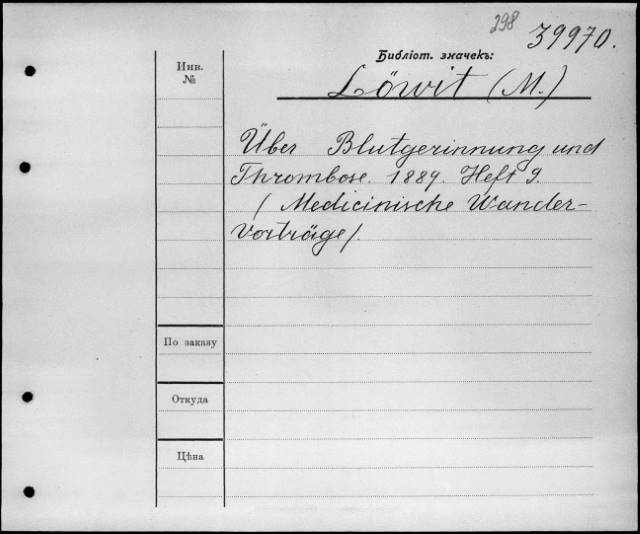 298 39970.
Библіот. значекъ:
Инв.
№
Löwit (M.)
Über Blutgerinnung und
Thrombose. 1889. Heft 9.
(Medicinische Wander-
vorträge).
По заказу
Откуда
Цѣна